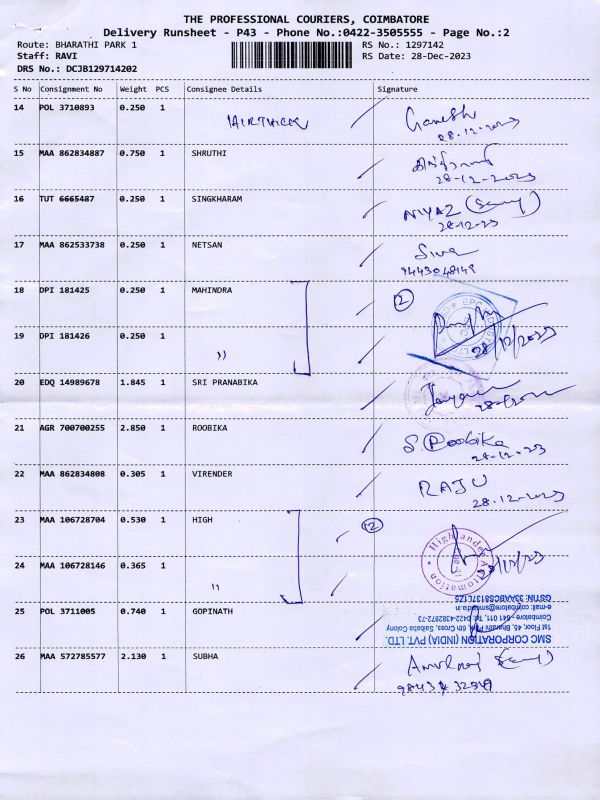 THE PROFESSIONAL COURIERS, COIMBATORE
Delivery Runsheet - P43 - Phone No.:0422-3505555 - Page No.:2
Route: BHARATHI PARK 1 RS No.: 1297142
Staff: RAVI RS Date: 28-Dec-2023
DRS No.: DCJB129714202
S No Consignment No Weight PCS Consignee Details Signature
14 POL 3710893 0.250 1 Ganesh
28.12.2023
15 MAA 862834887 0.750 1 SHRUTHI
28-12-2023
16 TUT 6665487 0.250 1 SINGKHARAM NIYAZ
17 MAA 862533738 0.250 1 NETSAN Siva
18 DPI 181425 0.250 1 MAHINDRA 2
19 DPI 181426 0.250 1 "
28/12/2023
20 EDQ 14989678 1.845 1 SRI PRANABIKA
21 AGR 700700255 2.850 1 ROOBIKA S. Roobika
22 MAA 862834808 0.305 1 VIRENDER RAJU
28.12.2023
23 MAA 106728704 0.530 1 HIGH 2
Highlander Automation
24 MAA 106728146 0.365 1 "
25 POL 3711005 0.740 1 GOPINATH
SMC CORPORATION (INDIA) PVT. LTD.
1st Floor, 45, Bharathi Park, 6th Cross, Saibaba Colony
Coimbatore - 641 011, Tel: 0422-4382872-73
e-mail: coimbatore@smcin.in
26 MAA 572785577 2.130 1 SUBHA